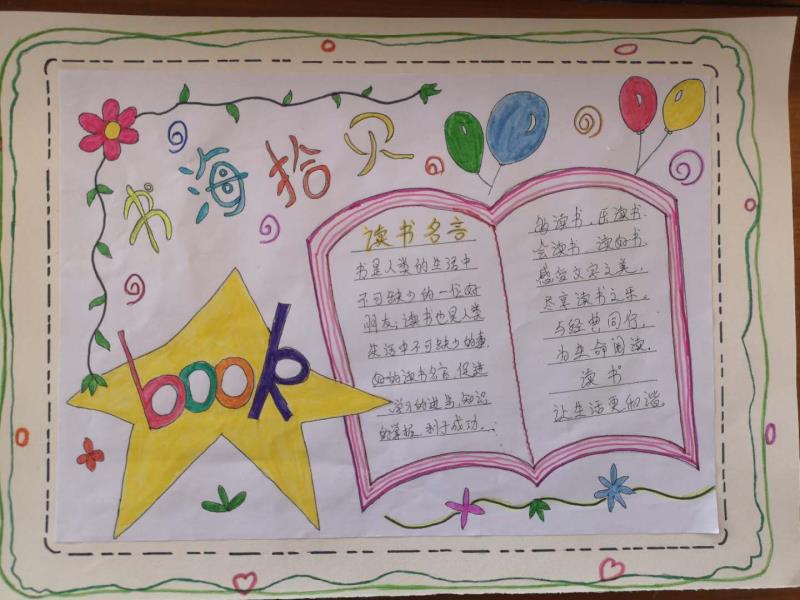 书海拾贝
book
读书名言
书是人类的生活中
不可缺少的一位好
朋友;读书也是人类
生活中不可缺少的事,
好的读书名言,促进
学习的进步,知识
的掌握,利于成功。
读书,乐读书.
会读书、读好书.
感受文字之美,
尽享读书之乐。
与经典同行,
为生命阅读,
读书
让生活更和谐.